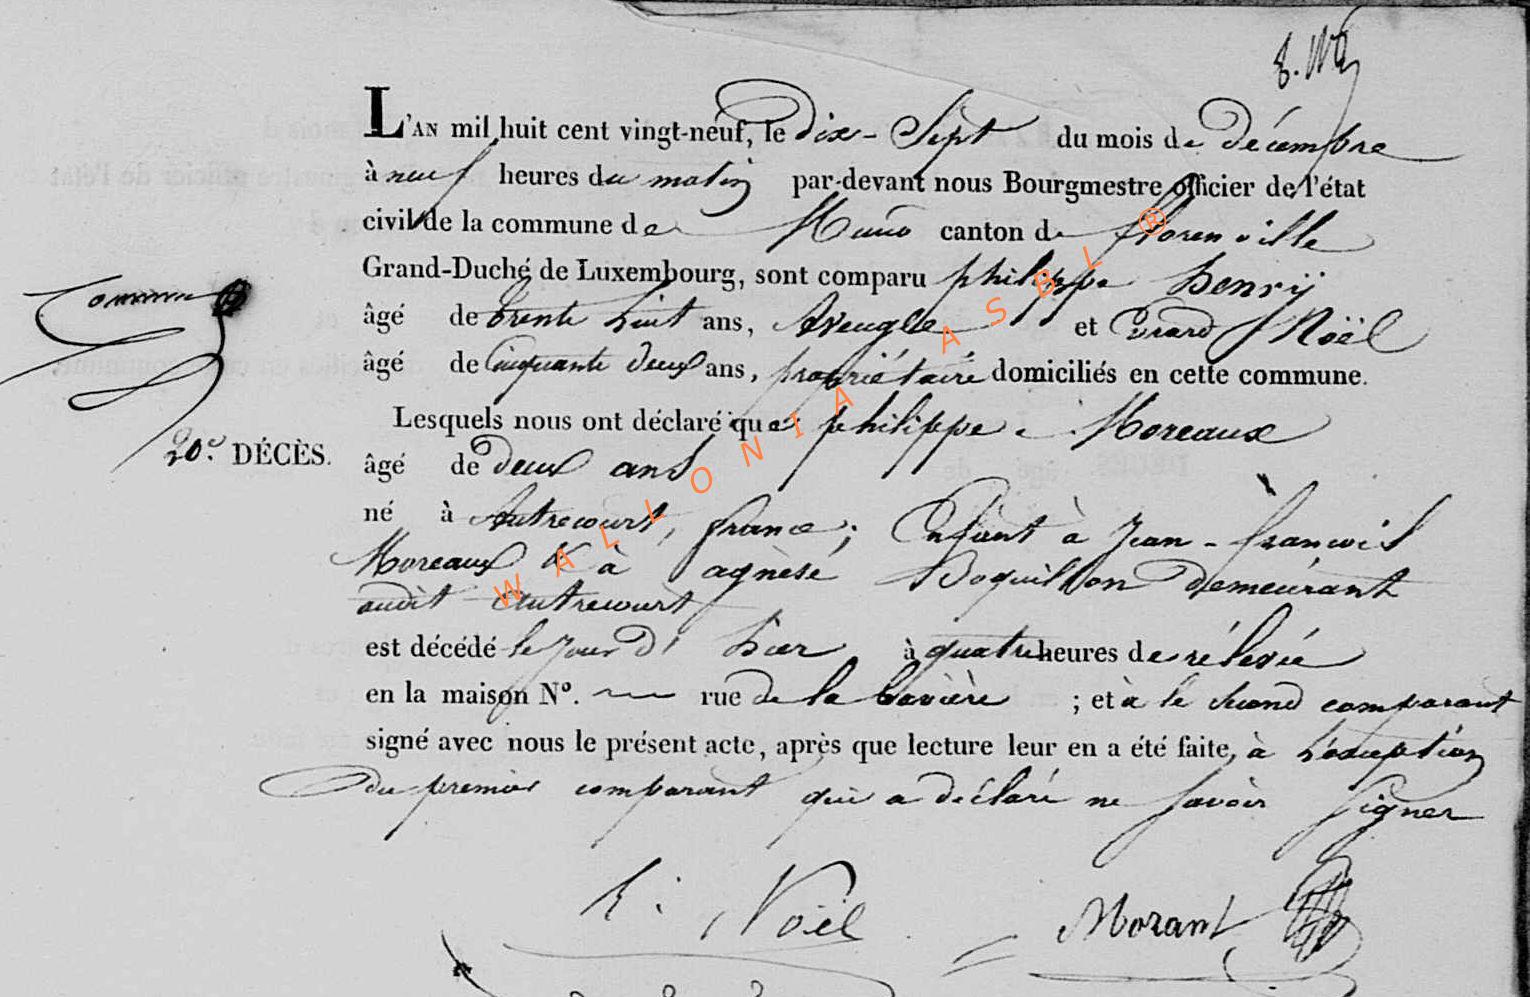 L'AN mil huit cent vingt-neuf, le dix-Sept du mois de décembre
à neuf heures du matin par-devant nous Bourgmestre officier de l'état
civil de la commune de Muno canton de florenville
Grand-Duché de Luxembourg, sont comparu philippe henrÿ
âgé de trente huit ans, Aveugle et Evrard Noël
âgé de Cinquante deux ans, propriétaire domiciliés en cette commune.
Lesquels nous ont déclaré que philippe Moreaux
20.e DÉCÈS.
âgé de deux ans
né à Autrecourt, france; Enfant à Jean-francois
Moreaux & à agnèse Boquillon demeurant
audit Autrecourt
est décédé le jour d'hier à quatre heures de rélevée
en la maison N°. rue de la bavière ; et a le second comparant
signé avec nous le présent acte, après que lecture leur en a été faite, à l'exception
du premier comparant qui a déclaré ne savoir signer
E. Noël Morant
WALLONIA ASBL ®